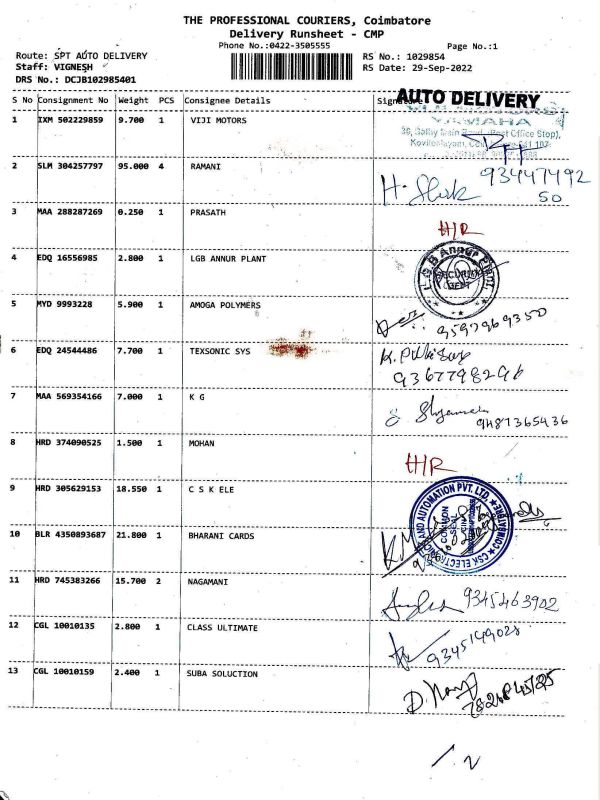 THE PROFESSIONAL COURIERS, Coimbatore
Delivery Runsheet - CMP
Phone No.:0422-3505555
Page No.:1
Route: SPT AUTO DELIVERY
RS No.: 1029854
Staff: VIGNESH
RS Date: 29-Sep-2022
DRS No.: DCJB102985401
S No Consignment No Weight PCS Consignee Details
AUTO DELIVERY
1 IXM 502229859 9.700 1 VIJI MOTORS
YAMAHA
2 SLM 304257797 95.000 4 RAMANI
93447492
50
3 MAA 288287269 0.250 1 PRASATH
H/R
4 EDQ 16556985 2.800 1 LGB ANNUR PLANT
L.G.B Annur Plant
SECURITY
DEPT
5 MYD 9993228 5.900 1 AMOGA POLYMERS
9597969350
6 EDQ 24544486 7.700 1 TEXSONIC SYS
9367798296
7 MAA 569354166 7.000 1 K G
9487365436
8 HRD 374090525 1.500 1 MOHAN
H/R
9 HRD 305629153 18.550 1 C S K ELE
COMMON
SEAL
10 BLR 4350893687 21.800 1 BHARANI CARDS
11 HRD 745383266 15.700 2 NAGAMANI
9345463902
12 CGL 10010135 2.800 1 CLASS ULTIMATE
9345149028
13 CGL 10010159 2.400 1 SUBA SOLUCTION